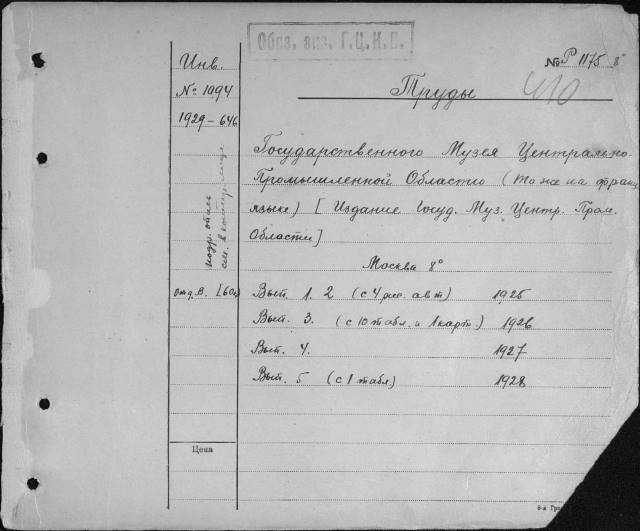 Обяз. экз. Г.Ц.К.П.
Инв.
№ 1094
1929-646
№ Р 1175 8°
410
Труды
Государственного Музея Центрально-
Промышленной Области (то же на франц.
языке) [Издание Госуд. Муз. Центр. Пром.
Области]
подр. опись
см. в контр.
Москва 8°
Отд. В. [60к]
Вып. 1. 2 (с 4 рис. авт) 1925
Вып. 3. (с 10 табл. и 1 карт.) 1926
Вып. 4. 1927
Вып. 5 (с 1 табл) 1928
Цена